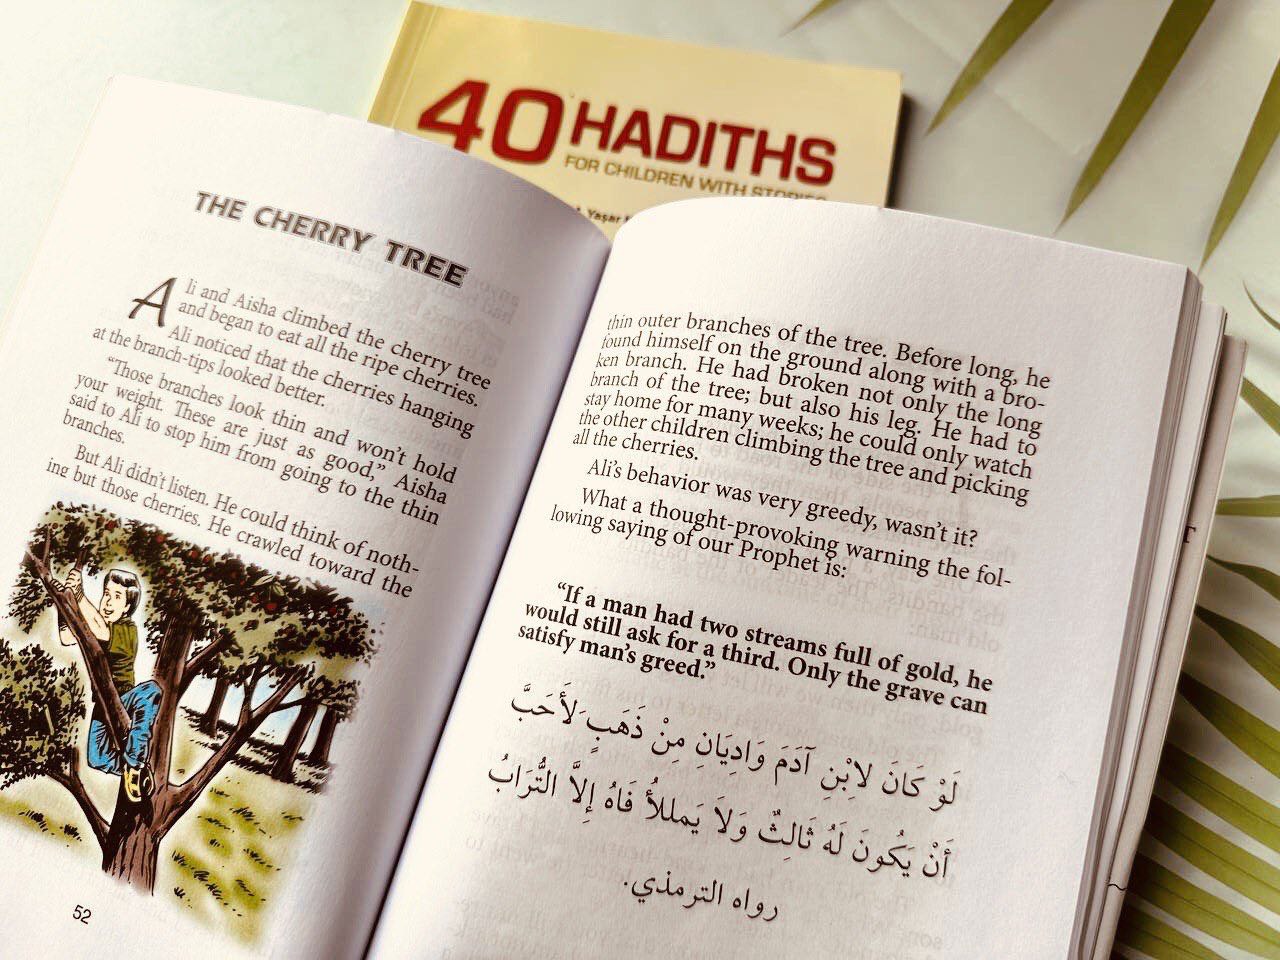 40 HADITHS
FOR CHILDREN WITH STORIES
Yaşar
THE CHERRY TREE
Ali and Aisha climbed the cherry tree
and began to eat all the ripe cherries.
Ali noticed that the cherries hanging
at the branch-tips looked better.
“Those branches look thin and won’t hold
your weight. These are just as good,” Aisha
said to Ali to stop him from going to the thin
branches.
But Ali didn’t listen. He could think of noth-
ing but those cherries. He crawled toward the
52
thin outer branches of the tree. Before long, he
found himself on the ground along with a bro-
ken branch. He had broken not only the long
branch of the tree; but also his leg. He had to
stay home for many weeks; he could only watch
the other children climbing the tree and picking
all the cherries.
Ali’s behavior was very greedy, wasn’t it?
What a thought-provoking warning the fol-
lowing saying of our Prophet is:
“If a man had two streams full of gold, he
would still ask for a third. Only the grave can
satisfy man’s greed.”
لَوْ كَانَ لاِبْنِ آدَمَ وَادِيَانِ مِنْ ذَهَبٍ لَأَحَبَّ
أَنْ يَكُونَ لَهُ ثَالِثٌ وَلاَ يَمْلَلأُ فَاهُ إِلاَّ التُّرَابُ
رواه الترمذي.